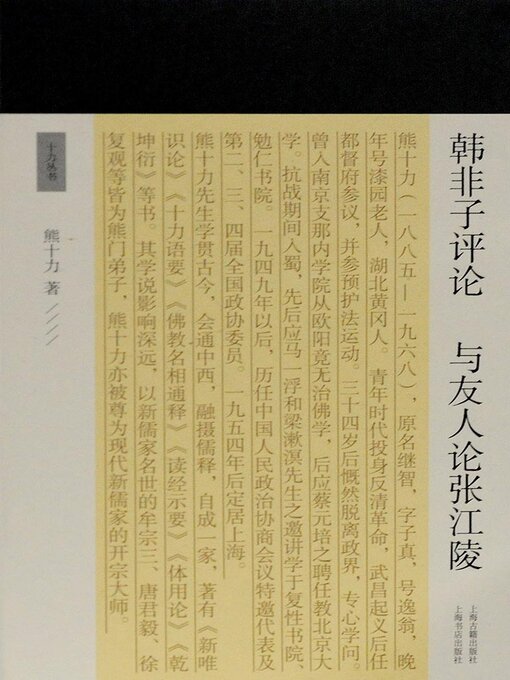 韩非子评论　与友人论张江陵
上海古籍出版社
上海书店出版社
熊十力（一八八五—一九六八），原名继智，字子真，号逸翁，晚
年号漆园老人，湖北黄冈人。青年时代投身反清革命，武昌起义后任
都督府参议，并参预护法运动。三十四岁后慨然脱离政界，专心学问。
曾入南京支那内学院从欧阳竟无治佛学，后应蔡元培之聘任教北京大
学。抗战期间入蜀，先后应马一浮和梁漱溟先生之邀讲学于复性书院、
勉仁书院。一九四九年以后，历任中国人民政治协商会议特邀代表及
第二、三、四届全国政协委员。一九五四年后定居上海。
熊十力先生学贯古今，会通中西，融摄儒释，自成一家，著有《新唯
识论》《十力语要》《佛教名相通释》《读经示要》《体用论》《乾
坤衍》等书。其学说影响深远，以新儒家名世的牟宗三、唐君毅、徐
复观等皆为熊门弟子，熊十力亦被尊为现代新儒家的开宗大师。
十力丛书
熊十力 著